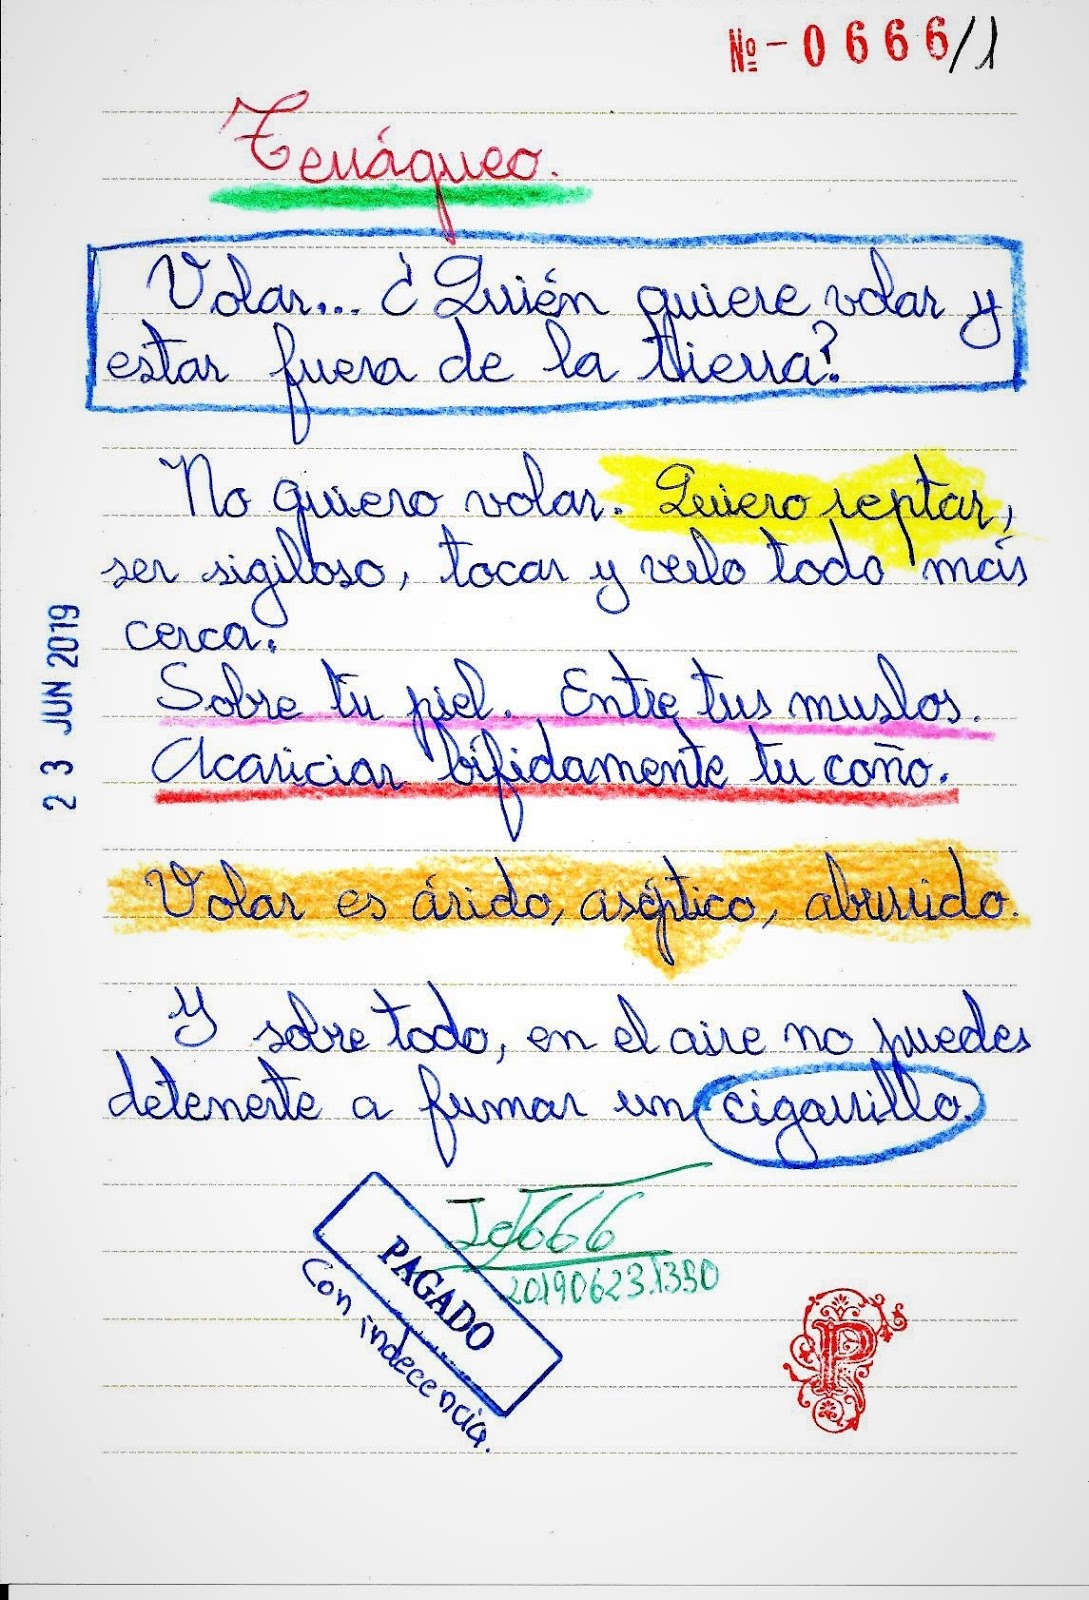 Nº - 0666/1
Terráqueo.
Volar... ¿Quién quiere volar y
estar fuera de la tierra?
No quiero volar. Quiero reptar,
ser sigiloso, tocar y verlo todo más
cerca.
Sobre tu piel. Entre tus muslos.
Acariciar bífidamente tu coño.
Volar es árido, aséptico, aburrido.
Y sobre todo, en el aire no puedes
detenerte a fumar un cigarrillo.
23 JUN 2019
20190623.1330
PAGADO
Con indecencia.
P